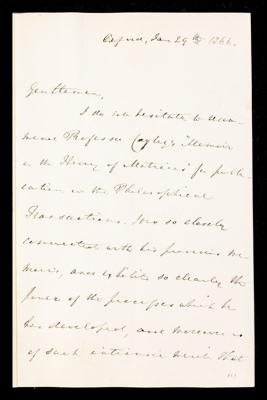 Oxford, Jan 29th 1866.
Gentlemen,
I do not hesitate to recom-
mend Professor Cayley's "Memoir
on the Theory of Matrices" for publi-
cation in the Philosophical
Transactions. It is so closely
connected with his previous me-
moirs, and exhibits so clearly the
power of the processes which he
has developed, and moreover is
of such intrinsic merit that